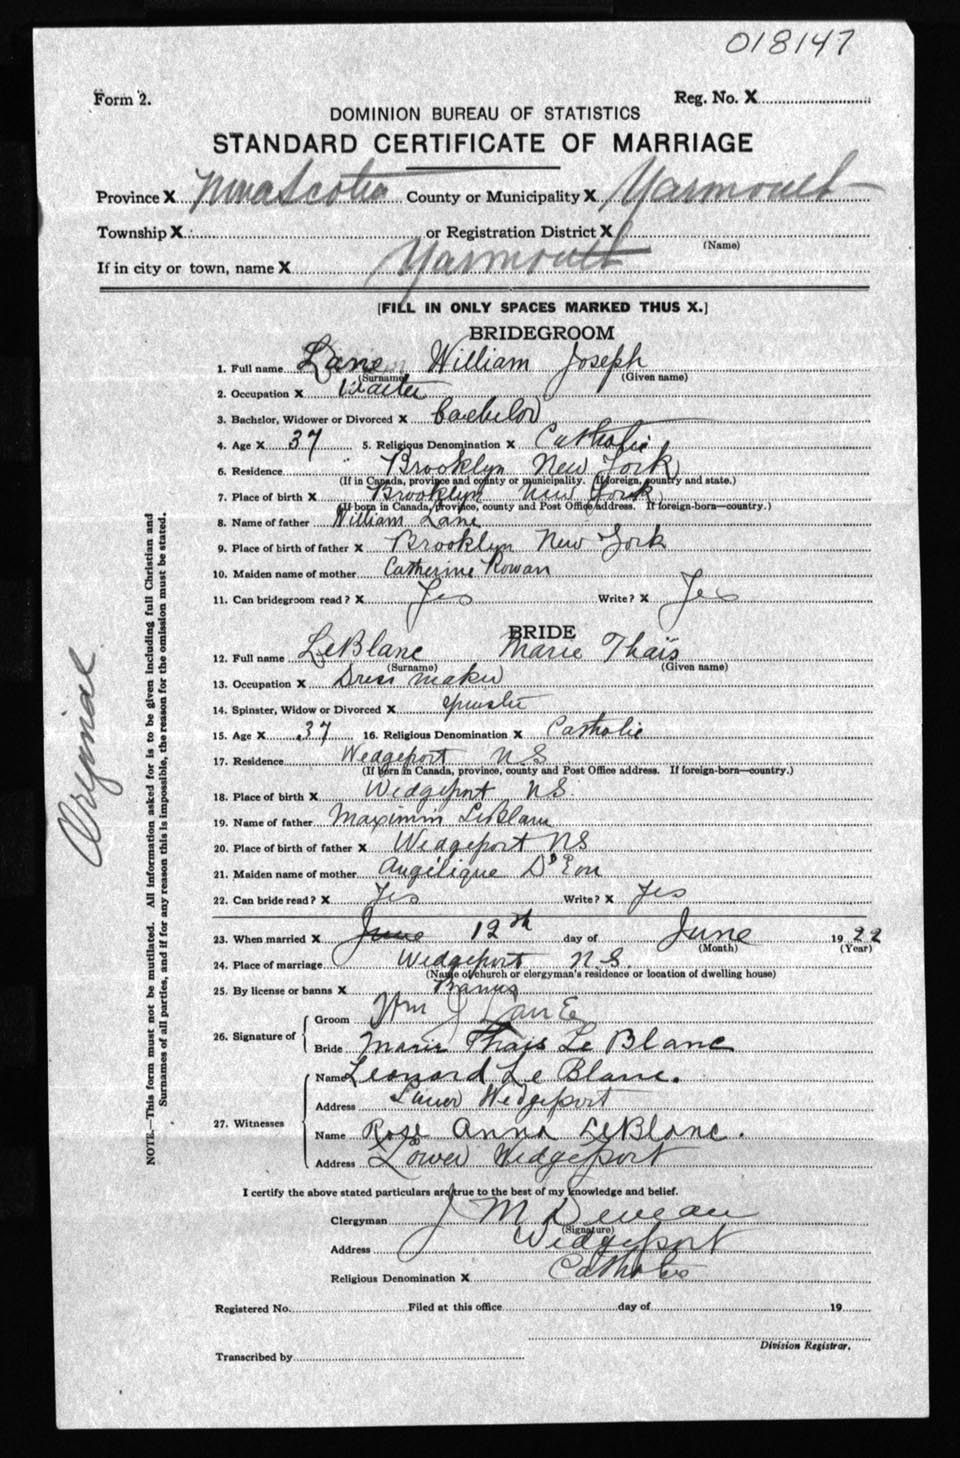 018147
Form 2.
Reg. No. X
DOMINION BUREAU OF STATISTICS
STANDARD CERTIFICATE OF MARRIAGE
Province X Nova Scotia County or Municipality X Yarmouth
Township X or Registration District X
(Name)
If in city or town, name X Yarmouth
[FILL IN ONLY SPACES MARKED THUS X.]
BRIDEGROOM
1. Full name Lane William Joseph
(Surname) (Given name)
2. Occupation X Waiter
3. Bachelor, Widower or Divorced X bachelor
4. Age X 37 5. Religious Denomination X Catholic
6. Residence Brooklyn New York
(If in Canada, province and county or municipality. If foreign, country and state.)
7. Place of birth X Brooklyn New York
(If born in Canada, province, county and Post Office address. If foreign-born—country.)
8. Name of father William Lane
9. Place of birth of father X Brooklyn New York
10. Maiden name of mother Catherine Rowan
11. Can bridegroom read? X Yes Write? X Yes
BRIDE
12. Full name LeBlanc Marie Thaïs
(Surname) (Given name)
13. Occupation X Dress maker
14. Spinster, Widow or Divorced X spinster
15. Age X 37 16. Religious Denomination X Catholic
17. Residence Wedgeport N S
(If born in Canada, province, county and Post Office address. If foreign-born—country.)
18. Place of birth X Wedgeport NS.
19. Name of father Maximin LeBlanc
20. Place of birth of father X Wedgeport NS
21. Maiden name of mother Angélique D'Eon
22. Can bride read? X Yes Write? X Yes
23. When married X June 12th day of June 1922
(Month) (Year)
24. Place of marriage Wedgeport N.S.
(Name of church or clergyman's residence or location of dwelling house)
25. By license or banns X Banns
26. Signature of
Groom Wm J Lane
Bride Marie Thais Le Blanc
27. Witnesses
Name Leonard Le Blanc.
Address Lower Wedgeport
Name Rose Anna LeBlanc.
Address Lower Wedgeport
I certify the above stated particulars are true to the best of my knowledge and belief.
Clergyman J M Deveau
(Signature)
Address Wedgeport
Religious Denomination X Catholic
Registered No. Filed at this office day of 19
Division Registrar.
Transcribed by
Original
NOTE.—This form must not be mutilated. All information asked for is to be given including full Christian and
Surnames of all parties, and if for any reason this is impossible, the reason for the omission must be stated.